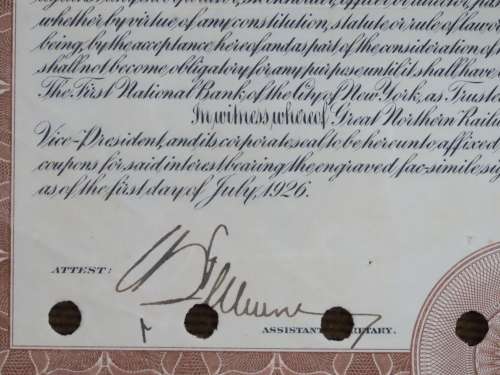 whether by virtue of any constitution, statute or rule of law or
being, by the acceptance hereof and as part of the consideration of
shall not become obligatory for any purpose until it shall have
The First National Bank of the City of New York, as Truste
In witness whereof Great Northern Railw
Vice-President, and its corporate seal to be hereunto affixed
coupons for said interest bearing the engraved fac-simile sig
as of the first day of July, 1926.
ATTEST:
ASSISTANT SECRETARY.